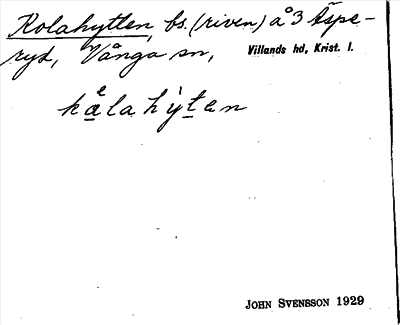 Kolahyttan, bs. (riven) å 3 Äspe-
ryd, Vånga sn, Villands hd, Krist. l.
kålahỳtan
JOHN SVENSSON 1929